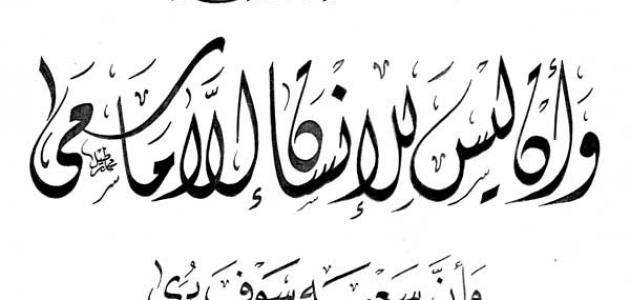 وَأَن لَيْسَ لِلإِنسَانِ إِلاَّ مَا سَعَى
وَأَنَّ سَعْيَهُ سَوْفَ يُرَى